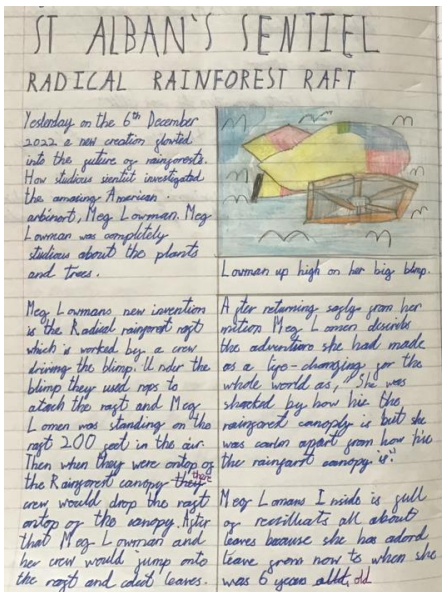 ST ALBAN'S SENTIEL
RADICAL RAINFOREST RAFT
Yesterday on the 6th December
2022 a new creation flowted
into the future of rainforests.
How studious sientist investigated
the amazing American
arbinort, Meg Lowman. Meg
Lowman was completely
studious about the plants
and trees.
Lowman up high on her big blimp.
Meg Lowmans, new invention
is the Radical rainforest raft
which is worked by a crew
driving the blimp. Under the
blimp they used rops to
atach the raft and Meg
Lomen was standing on the
raft 200 feet in the air.
Then when they were ontop of
the Rainforest canopy there
crew would drop the raft
ontop of the canopy. After
that Meg Lowman and
her crew would jump onto
the raft and colect leaves.
After returning safly from her
mition Meg Lomen describs
the adventiors she had made
as a life-changing for the
whole world as, "She was
shocked by how hie the
rainforest canoply is but she
was carlm apart from how hie
the rainfarst canopy is."
Meg Lomans Inside is full
of about
leaves because she has adord
leave from now to when she
was 6 years old